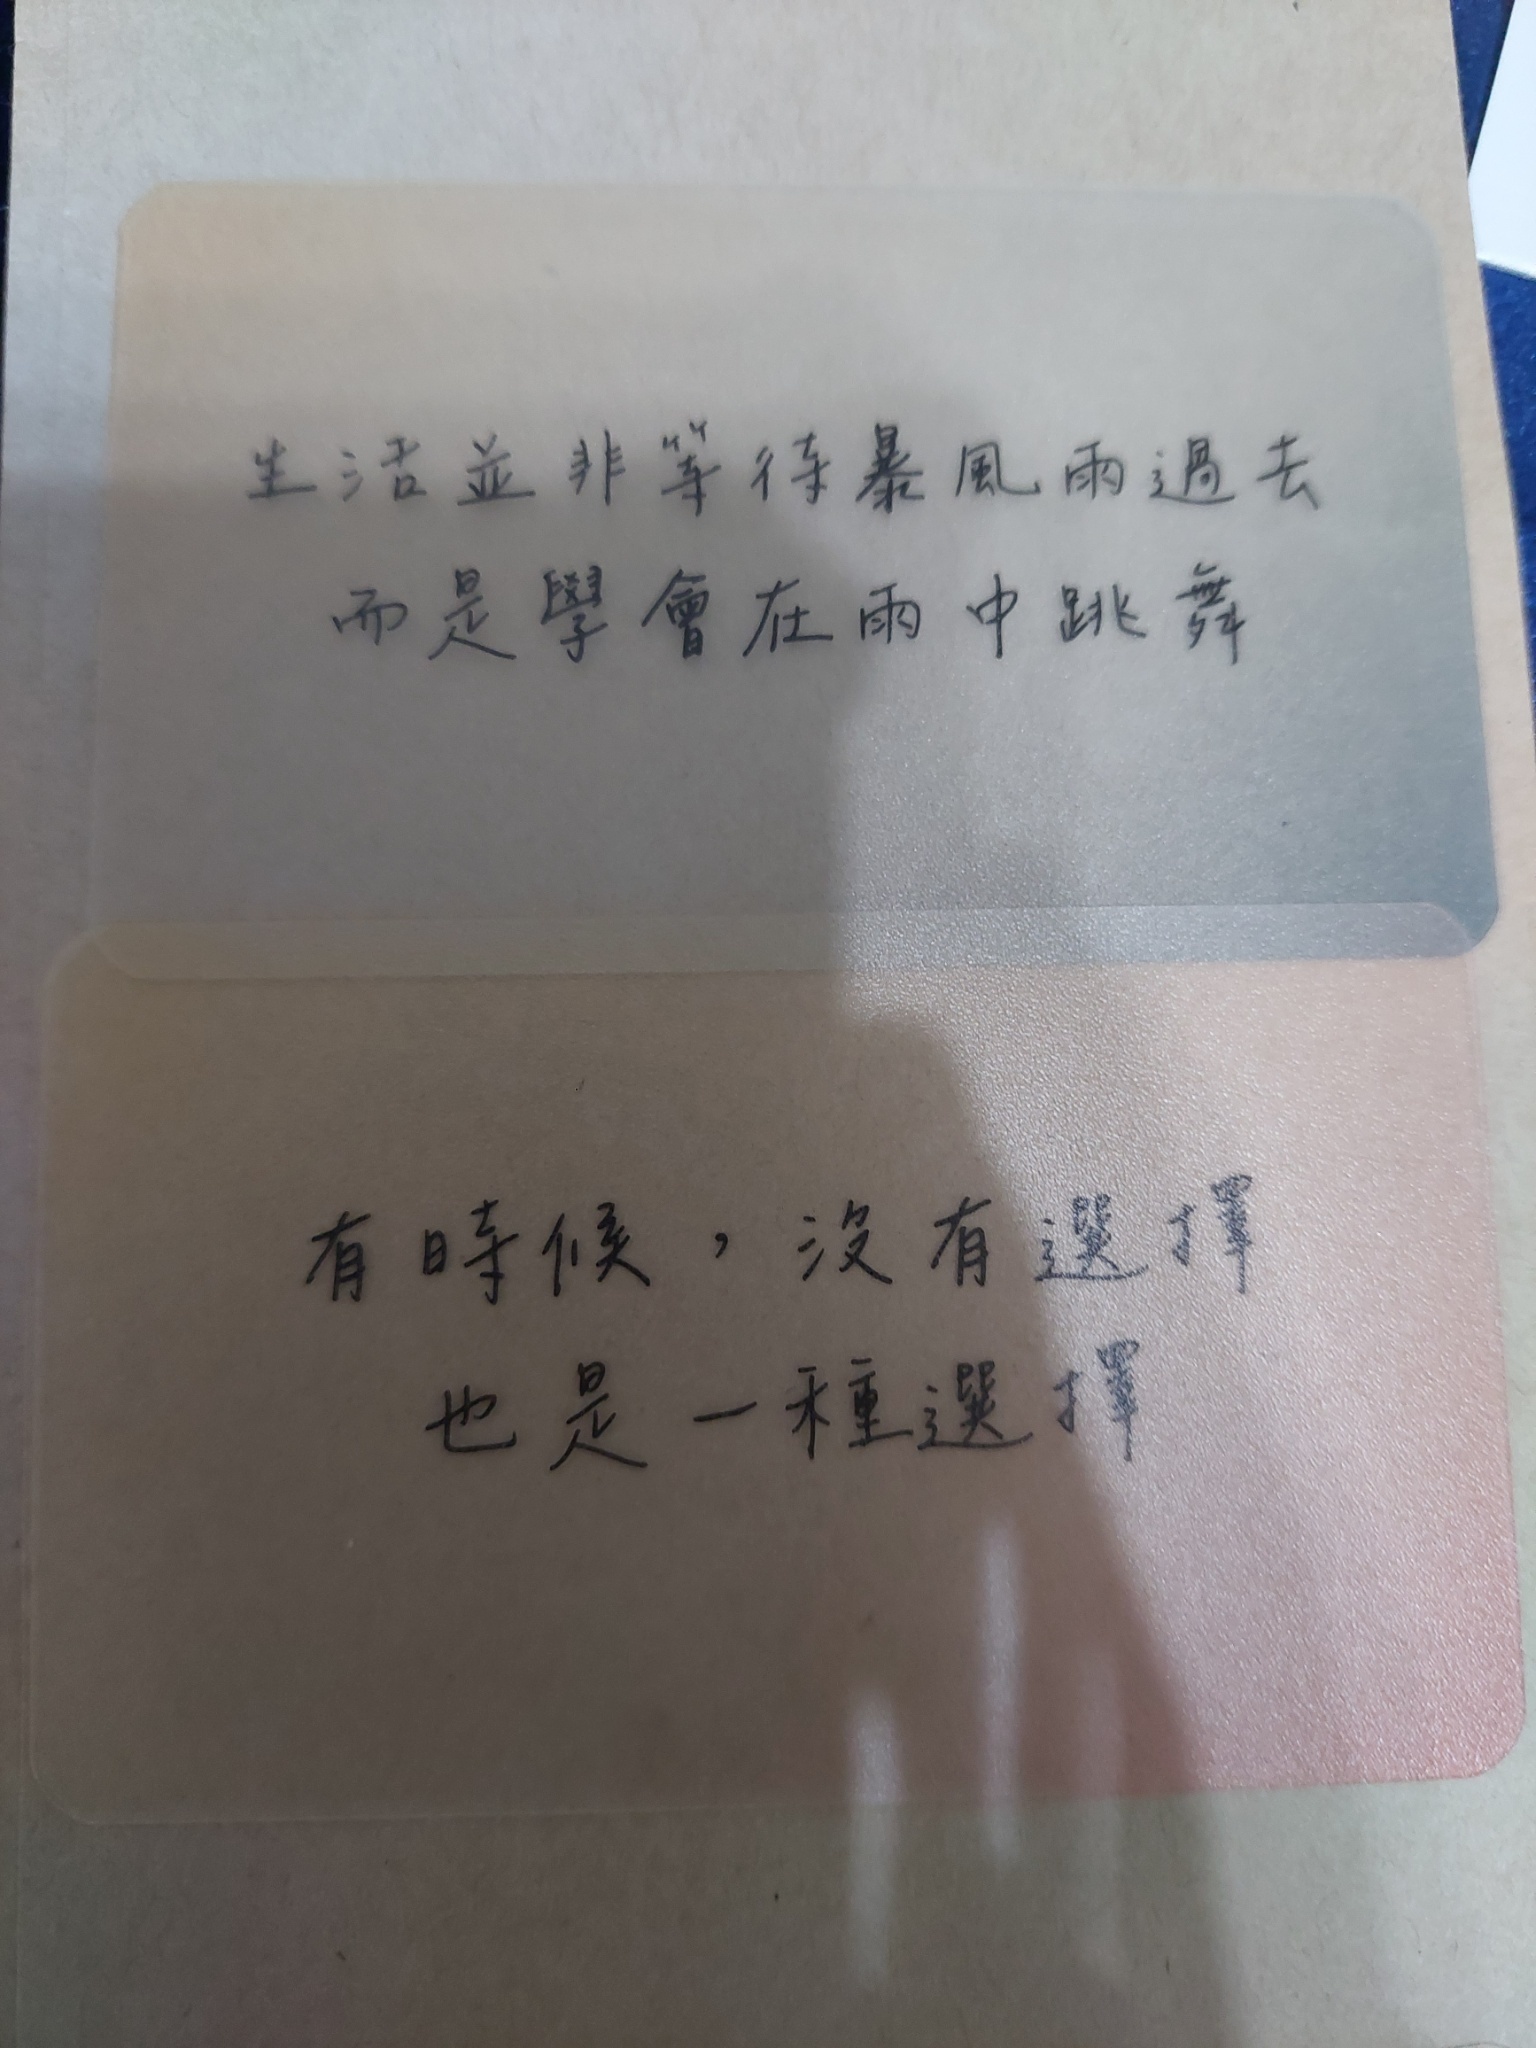 生活並非等待暴風雨過去
而是學會在雨中跳舞
有時候，沒有選擇
也是一種選擇